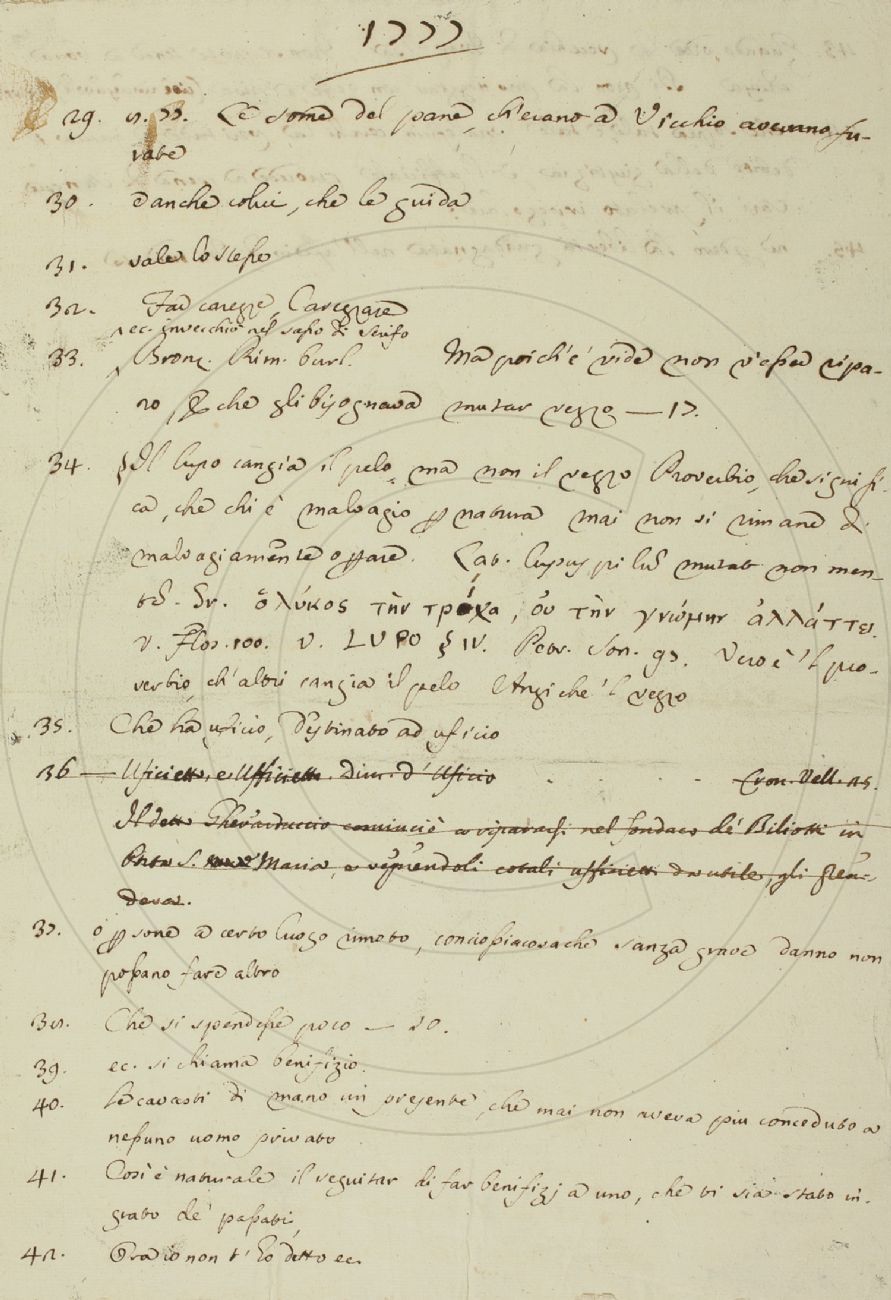 1777
29. 8. 77. Le some del pane, ch'erano a Vicchio avevano fu-
rate
30. E anche colui, che le guida
31. vale lo stesso
32. Far carezze, Carezzare
ec. invecchiò nel sasso di Serifo
33. Bronz. Rim. burl. Ma poich'e' vide non v'esser ripa-
ro che gli bisognava mutar vezzo — 17.
34. § Il lupo cangia il pelo, ma non il vezzo Proverbio, che signifi-
ca, che chi è malvagio p natura mai non si rimane di
malvagiamente opare. Lat. lupus pilū mutat non men-
tē. Gr. ὁ λύκος τὴν τρίχα, οὐ τὴν γνώμην ἀλλάττει.
v. Flos. 100. V. LUPO § IV. Petr. Son. 97. Vero è 'l pro-
verbio, ch'altri cangia il pelo Anzi che 'l vezzo
35. Che ha uficio, Destinato ad uficio
36 — Uficietto, e Ufficietto. Dim. d'Uficio . . . . Cron. Vell. 25.
Il detto Gherarduccio cominciò a ripararsi nel fondaco de' Biliotti in
Porta S. Maria, e essendoli cotali ufficietti da utile, gli
37. o psone a certo luogo rimoto, conciossiacosachè sanza grave danno non
possano fare altro
38. Che si spendesse poco — 20.
39. ec. si chiama benifizio.
40. Le cavasti di mano un presente, che mai non aveva piu conceduto a
nessuno uomo privato
41. Così è naturale il seguitar di far benifizj a uno, che ti sia stato in-
grato de' passati,
42. Ora io non t'ho detto ec.